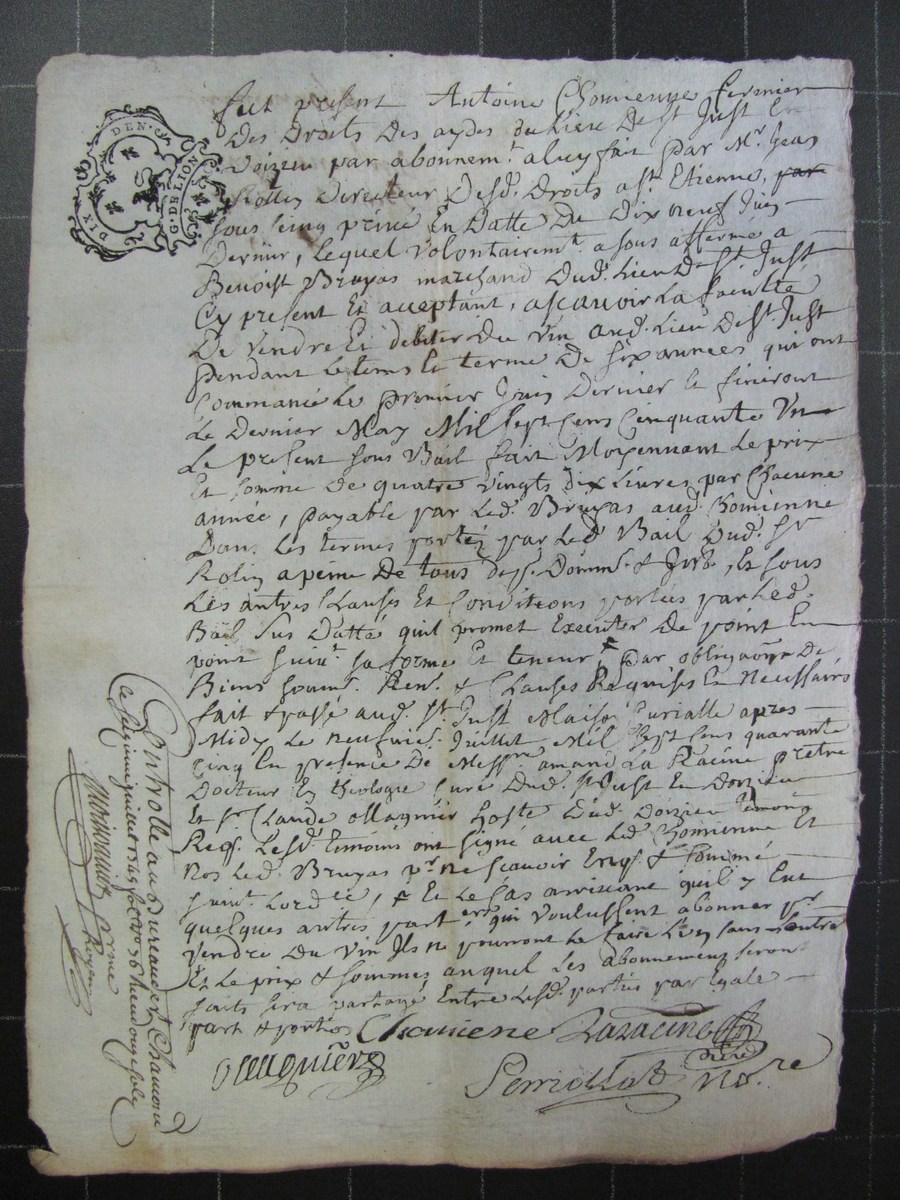 DIX DEN. G. DE LION
fut present Antoine Chomienne fermier
Des Droits Des aydes du Lieu De St Just En
Doizieu par abonnemt. a luy fait par Mr. Jean
Rollin Directeur Desd. Droits a St. Etienne,
sous seing privé En Datte Du Dix neuf Juin
Dernier, Lequel volontairemt. a sous afferme a
Benoist Bruyas marchand Dud. Lieu De St Just
Cy present Et acceptant, ascavoir La faculté
De vendre Et debiter Du vin aud. Lieu De St Just
pendant Le tems Et terme De six années qui ont
Commancé Le premier Juin Dernier Et finiront
Le Dernier May Mil sept Cens Cinquante Un
Le present sous Bail fait Moyennant Le prix
Et somme De quatre vingts dix Livres par Chacune
année, payable par Led. Bruyas aud. Chomienne
Dans Les termes portéz par Led. Bail Dud. Sr
Rolin a peine De tous Desp. Domm. &
Et sous
Les autres Clauses Et Conditions portées par Led.
Bail sus Datté quil promet Executer De point En
point suivt. sa forme Et teneur, par obligaon De
Biens soumis. Ren. & Clauses Requises Et Necessaires
fait & passé aud. St. Just Maison Curialle apres
Midy Le neufvie. Juillet Mil Sept Cens quarante
Cinq En presence De Messre amand La Racine prêtre
Docteur En theologie Curé Dud. St Just En Doizieu
Et Sr. Claude ollagnier hoste Dud. Doizieu temoins
Req. Lesd. temoins ont signé avec Led. Chomienne Et
Nos Led. Bruyas pr. ne scavoir Enqs. & sommé
suivt. Lordce, & Et Le Cas arrivant quil y Eut
quelques autres part ers qui voulussent abonner pr.
vendre Du vin Ils ne pourront Le faire
sans
Et Le prix & sommes auquel Les abonnements seront
faits sera partagé Entre Lesd. parties par Egale
part & portion Chomiene Laracine
Curé
ollagnière Perrollat Nore
Controllé au Bureau de St Chamond